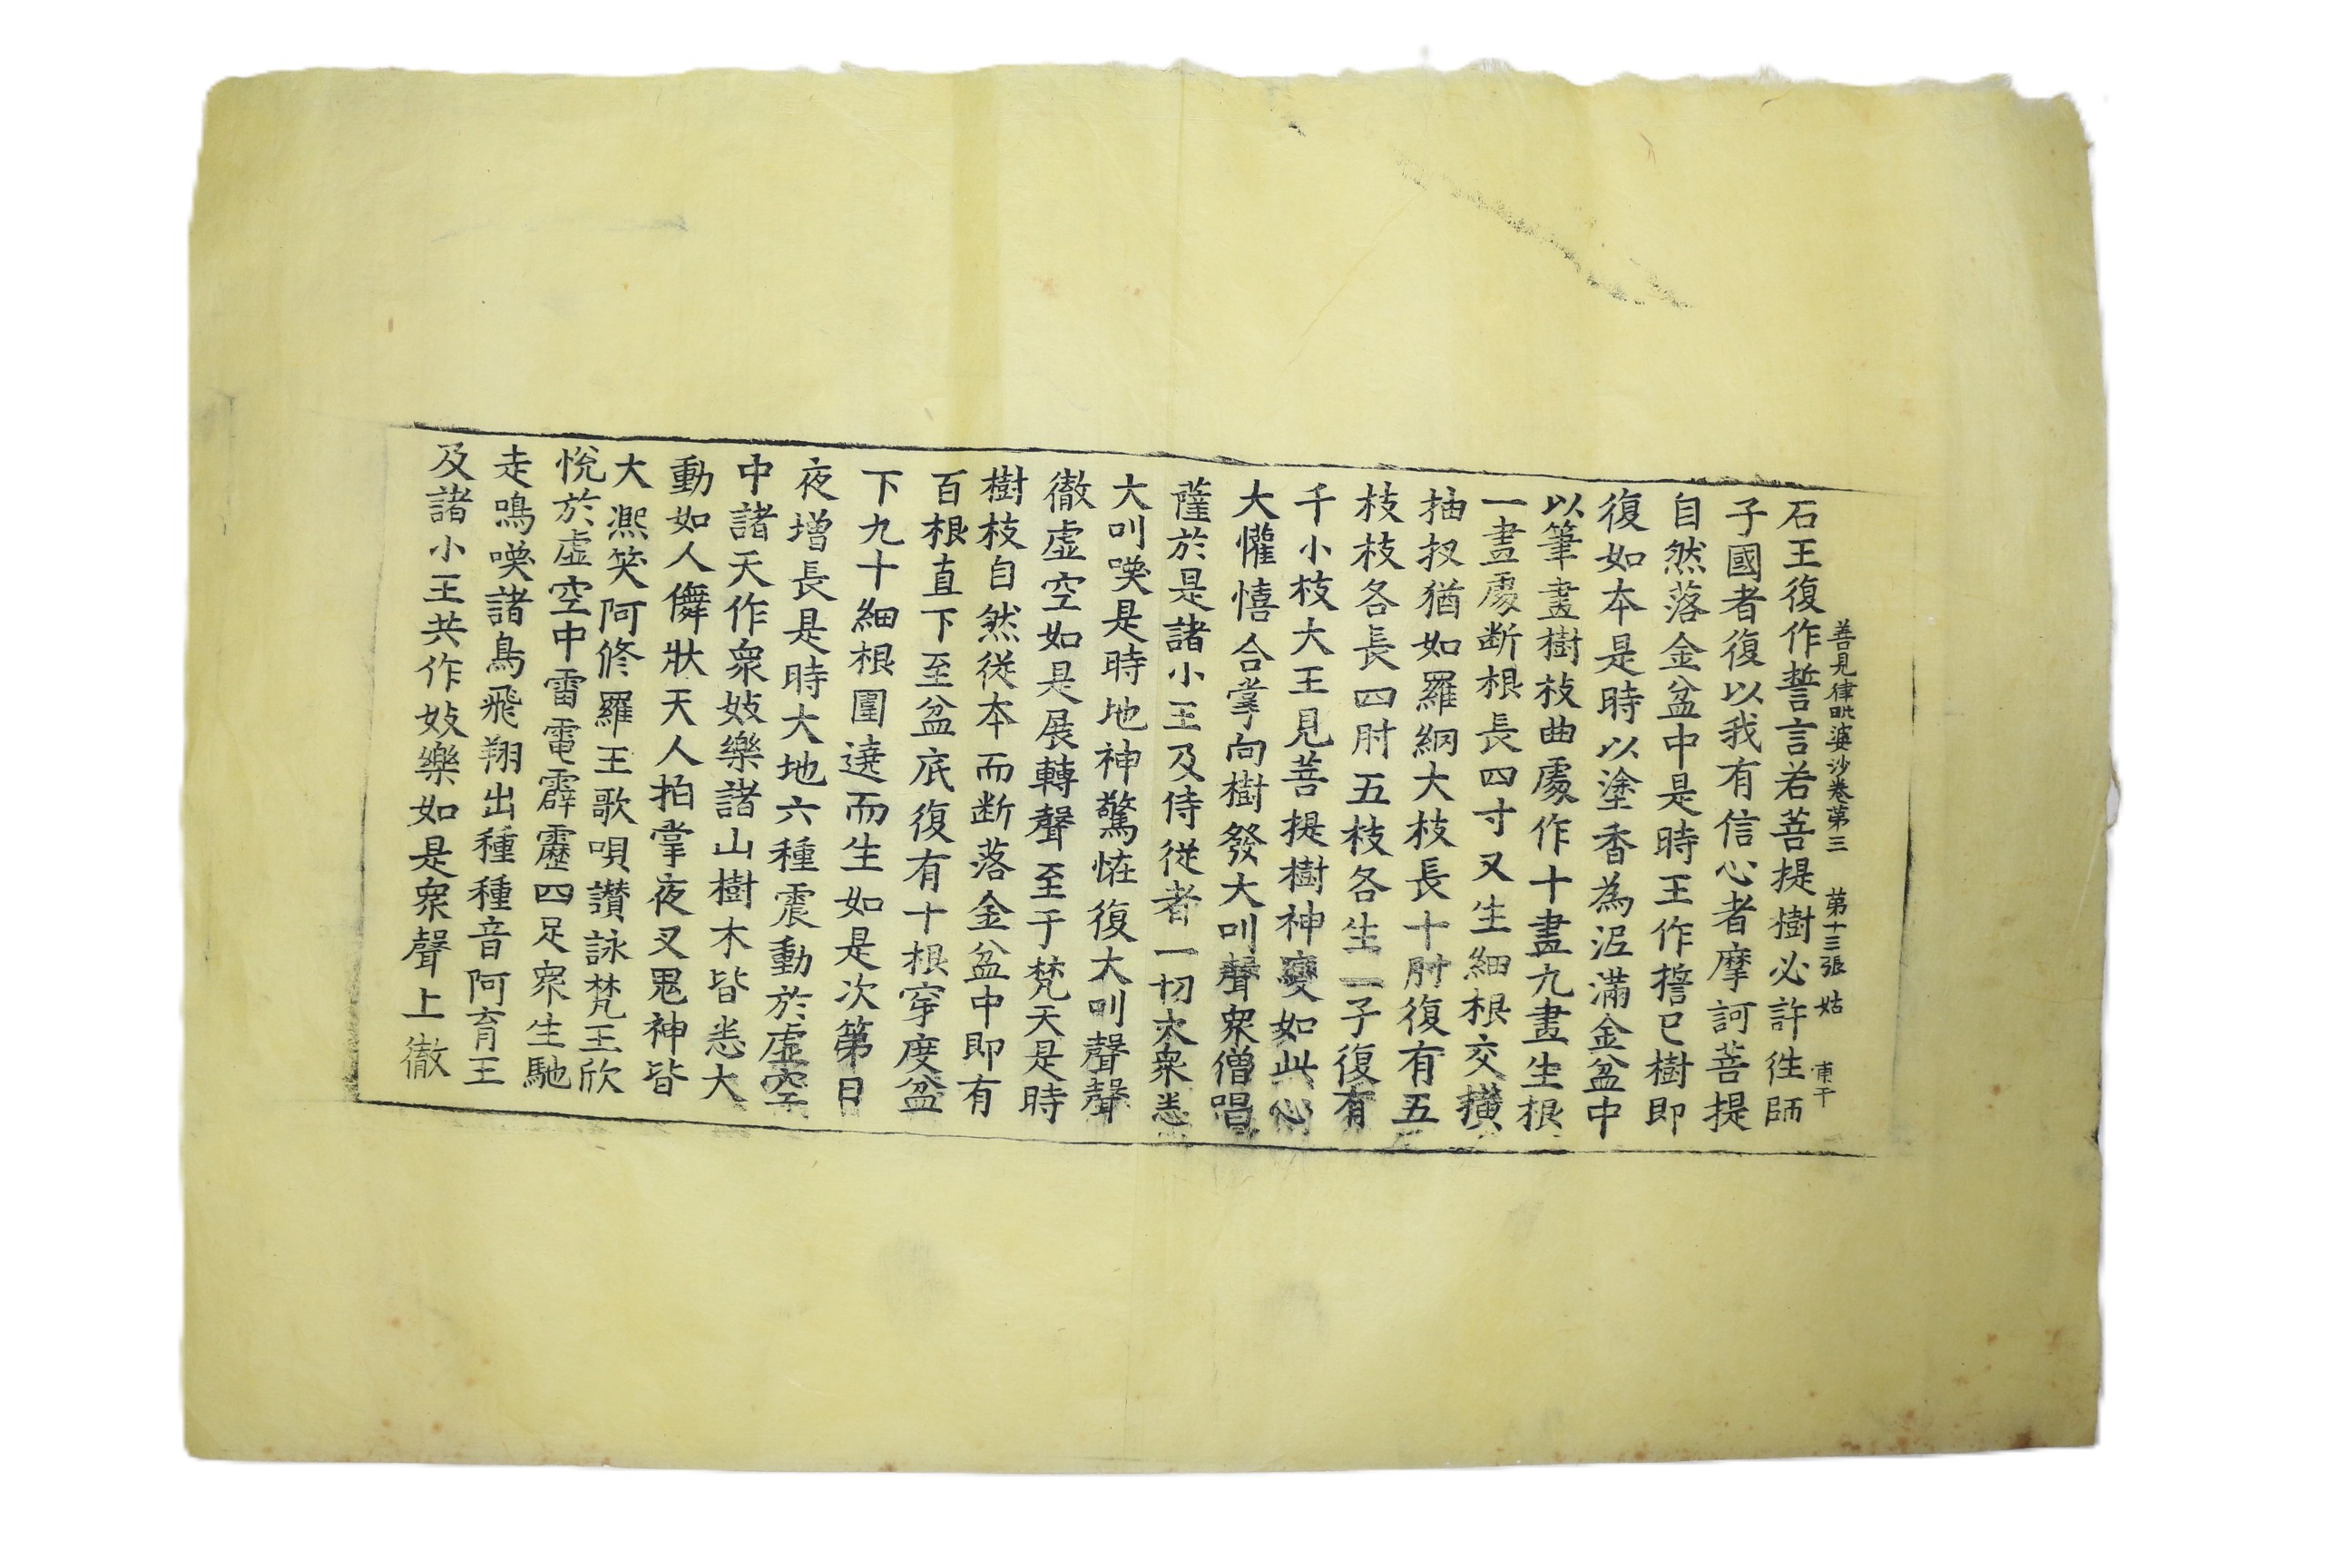 善見律毗婆沙卷苐三 苐十三張 姑
石王復作誓言若菩提樹必許徃師
子國者復以我有信心者摩訶菩提
自然落金盆中是時王作擔已樹即
復如本是時以塗香為泥滿金盆中
以筆畫樹枝曲處作十畫九畫生根
一畫處断根長四寸又生細根交撗
抽扠猶如羅網大枝長十肘復有五
枝枝各長四肘五枝各生一子復有
千小枝大王見菩提樹神變如此心
大懽憘合掌向樹發大叫聲衆僧唱
薩於是諸小王及侍從者一切大衆悉
大叫喚是時地神驚恠復大叫聲聲
徹虛空如是展轉聲至于梵天是時
樹枝自然從本而断落金盆中即有
百根直下至盆底復有十根穿度盆
下九十細根圍遶而生如是次第日
夜增長是時大地六種震動於虛空
中諸天作衆妓樂諸山樹木皆悉大
動如人儛狀天人拍掌夜叉鬼神皆
大熈笑阿修羅王歌唄讃詠梵王欣
悅於虛空中雷電霹靂四足衆生馳
走鳴喚諸鳥飛翔出種種音阿育王
及諸小王共作妓樂如是衆聲上徹